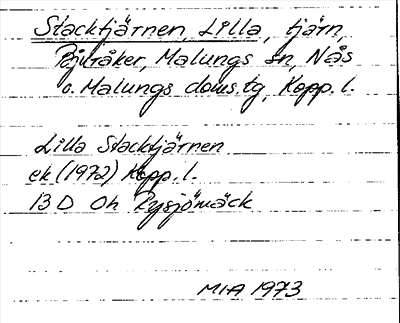 Stacktjärnen, Lilla, tjärn,
Malungs sn, Nås
o. Malungs doms.tg, Kopp. l.
Lilla Stacktjärnen
ek (1972) Kopp. l.
13 D Oh
MIA 1973